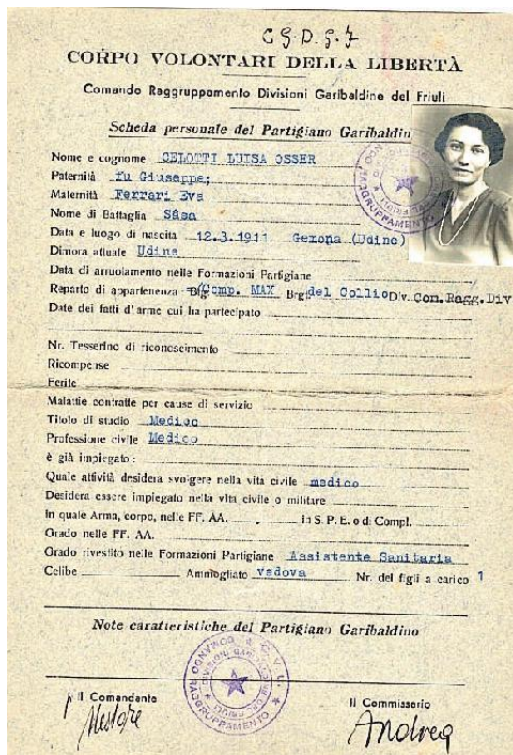 CORPO VOLONTARI DELLA LIBERTÀ
Comando Raggruppamento Divisioni Garibaldine del Friuli
Scheda personale del Partigiano Garibaldin
Nome e cognome CELOTTI LUISA OSSER
Paternità fu Giuseppe;
Maternità Ferrari Eva
Nome di Battaglia Sása
Data e luogo di nascita 12.3.1911 Gemona (Udine)
Dimora attuale Udine
Data di arruolamento nelle Formazioni Partigiane
Reparto di appartenenza Btg. Comp. MAX Brg. del Collio Div. Com.Ragg.Div
Date dei fatti d'arme cui ha partecipato
Nr. Tesserino di riconoscimento
Ricompense
Ferite
Malattie contratte per cause di servizio
Titolo di studio Medico
Professione civile Medico
è già impiegato:
Quale attività desidera svolgere nella vita civile medico
Desidera essere impiegato nella vita civile o militare
In quale Arma, corpo, nelle FF. AA. in S. P. E. o di Compl.
Grado nelle FF. AA.
Grado rivestito nelle Formazioni Partigiane Assistente Sanitaria
Celibe Ammogliato vedova Nr. dei figli a carico 1
Note caratteristiche del Partigiano Garibaldino
COMANDO RAGGRUPPAMENTO
Il Comandante Il Commissario
Andrea